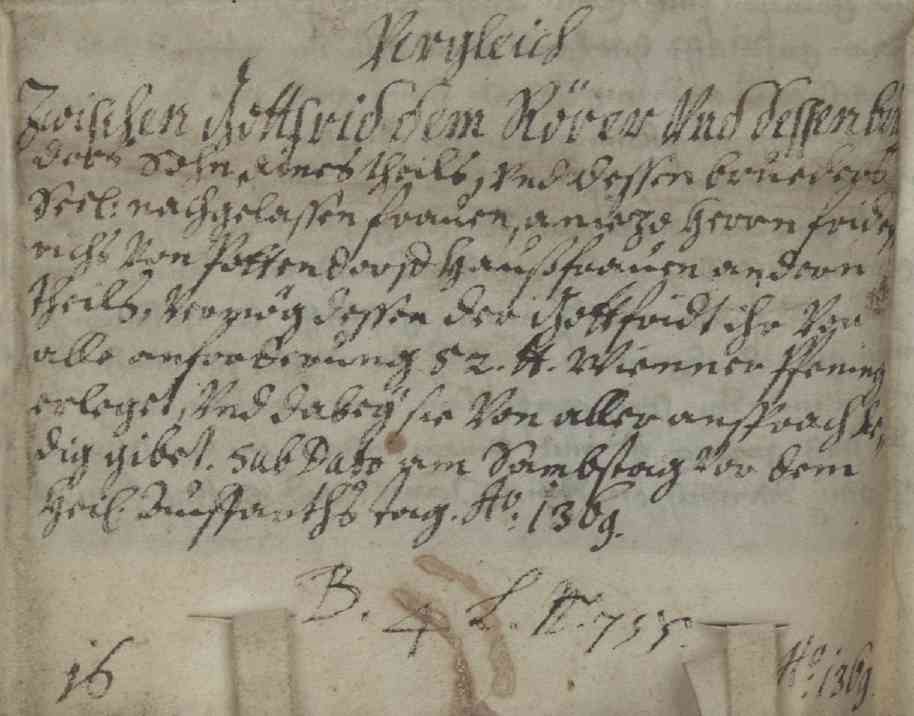 Vergleich
Zwischen Gottfrid dem Rörer Und dessen brü
ders Sohn eines theils, und dessen brueders
Seel: nachgelassen frauen, aniezo Herrn fride,
richs Von Pottendorff haußfrauen andern
theils, vermög dessen der Gottfridt ihr Vor
alle anforderung 52. ℔. Wienner Pfening
erleget, Und dabey sie Von aller ansprach le,
dig gibet. Sub Dato am Sambstag vor dem
Heil. Auffarths tag. Ao: 1369.
B. 4 L. N. 735.
16
Ao: 1369.